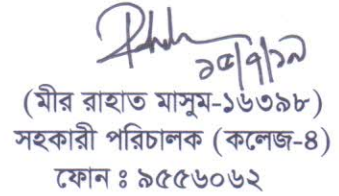 ১৫/৭/১৯
(মীর রাহাত মাসুম-১৬৩৯৮)
সহকারী পরিচালক (কলেজ-৪)
ফোন ঃ ৯৫৫৬০৬২